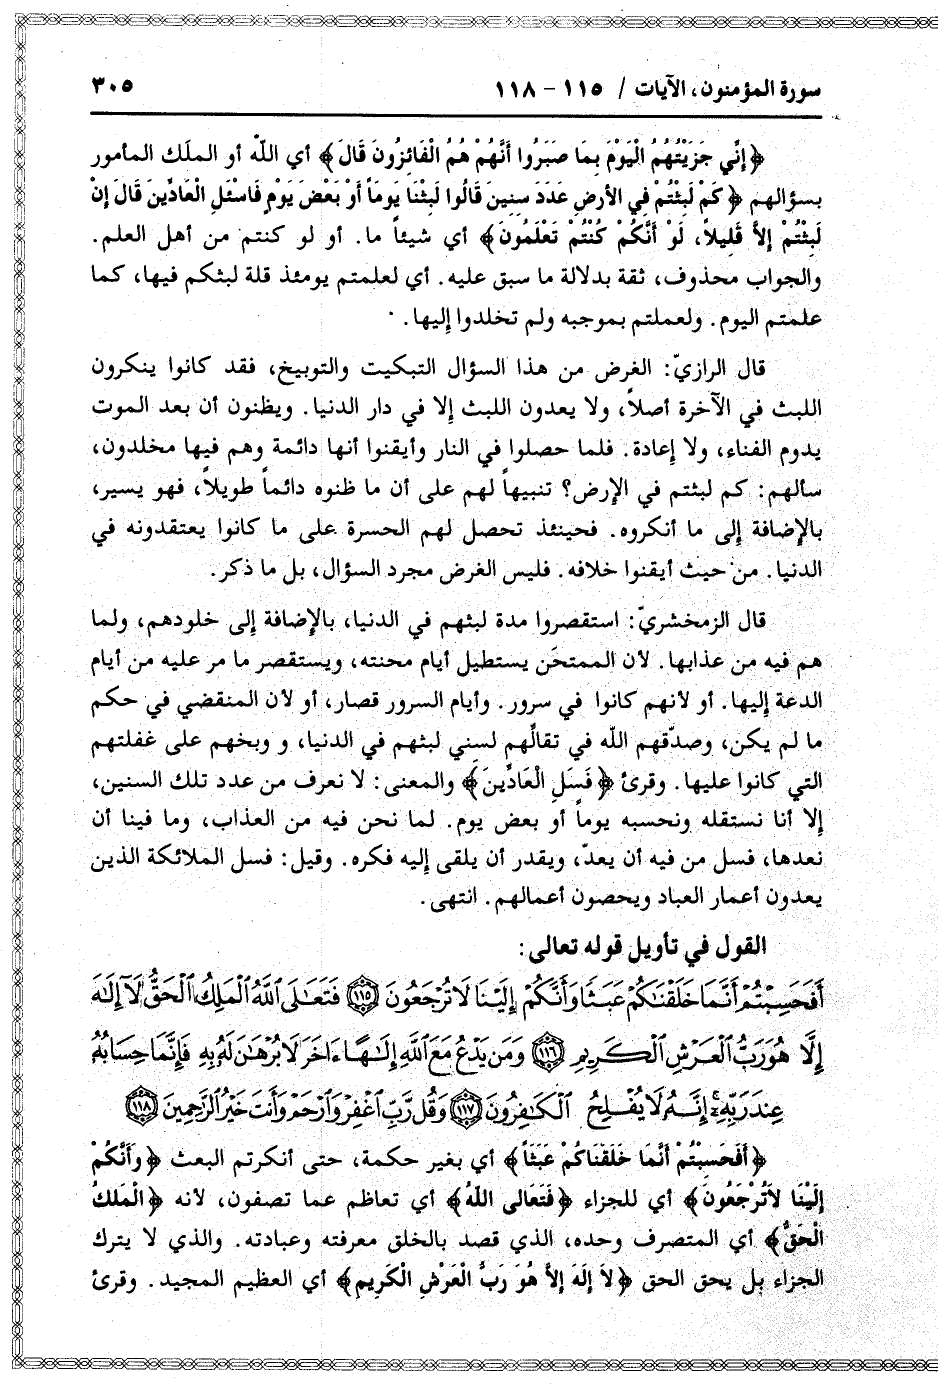 سورة المؤمنون، الآيات / ١١٥ - ١١٨ ٣٠٥
﴿إِنِّي جَزَيْتُهُمُ الْيَوْمَ بِمَا صَبَرُوا أَنَّهُمْ هُمُ الْفَائِزُونَ قَالَ﴾ أي اللّه أو الملَك المأمور
بسؤالهم ﴿كَمْ لَبِثْتُمْ فِي الأَرضِ عَدَدَ سِنِينَ قَالُوا لَبِثْنَا يَوماً أَوْ بَعْضَ يَوْمٍ فَاسْئَلِ الْعَادِّينَ قَالَ إِنْ
لَبِثْتُمْ إِلاَّ قَلِيلاً، لَوْ أَنَّكُمْ كُنْتُمْ تَعْلَمُونَ﴾ أي شيئاً ما. أو لو كنتم من أهل العلم.
والجواب محذوف، ثقة بدلالة ما سبق عليه. أي لعلمتم يومئذ قلة لبثكم فيها، كما
علمتم اليوم. ولعملتم بموجبه ولم تخلدوا إليها.
قال الرازيّ: الغرض من هذا السؤال التبكيت والتوبيخ، فقد كانوا ينكرون
اللبث في الآخرة أصلاً، ولا يعدون اللبث إلا في دار الدنيا. ويظنون أن بعد الموت
يدوم الفناء، ولا إعادة. فلما حصلوا في النار وأيقنوا أنها دائمة وهم فيها مخلدون،
سألهم: كم لبثتم في الإرض؟ تنبيهاً لهم على أن ما ظنوه دائماً طويلاً، فهو يسير،
بالإضافة إلى ما أنكروه. فحينئذ تحصل لهم الحسرة على ما كانوا يعتقدونه في
الدنيا. من حيث أيقنوا خلافه. فليس الغرض مجرد السؤال، بل ما ذكر.
قال الزمخشريّ: استقصروا مدة لبثهم في الدنيا، بالإضافة إلى خلودهم، ولما
هم فيه من عذابها. لأن الممتحَن يستطيل أيام محنته، ويستقصر ما مر عليه من أيام
الدعة إليها. أو لأنهم كانوا في سرور. وأيام السرور قصار، أو لأن المنقضي في حكم
ما لم يكن، وصدّقهم اللّه في تقالّهم لسني لبثهم في الدنيا، و وبخهم على غفلتهم
التي كانوا عليها. وقرئ ﴿فَسَلِ الْعَادِّينَ﴾ والمعنى: لا نعرف من عدد تلك السنين،
إلا أنا نستقله ونحسبه يوماً أو بعض يوم. لما نحن فيه من العذاب، وما فينا أن
نعدها، فسل من فيه أن يعدّ، ويقدر أن يلقى إليه فكره. وقيل: فسل الملائكة الذين
يعدون أعمار العباد ويحصون أعمالهم. انتهى.
القول في تأويل قوله تعالى:
أَفَحَسِبْتُمْ أَنَّمَا خَلَقْنَٰكُمْ عَبَثًا وَأَنَّكُمْ إِلَيْنَا لَا تُرْجَعُونَ ﴿١١٥﴾ فَتَعَٰلَى ٱللَّهُ ٱلْمَلِكُ ٱلْحَقُّ لَآ إِلَٰهَ
إِلَّا هُوَ رَبُّ ٱلْعَرْشِ ٱلْكَرِيمِ ﴿١١٦﴾ وَمَن يَدْعُ مَعَ ٱللَّهِ إِلَٰهًا ءَاخَرَ لَا بُرْهَٰنَ لَهُۥ بِهِۦ فَإِنَّمَا حِسَابُهُۥ
عِندَ رَبِّهِۦٓ إِنَّهُۥ لَا يُفْلِحُ ٱلْكَٰفِرُونَ ﴿١١٧﴾ وَقُل رَّبِّ ٱغْفِرْ وَٱرْحَمْ وَأَنتَ خَيْرُ ٱلرَّٰحِمِينَ ﴿١١٨﴾
﴿أَفَحَسِبتُمْ أَنَّمَا خَلَقْنَاكُمْ عَبَثاً﴾ أي بغير حكمة، حتى أنكرتم البعث ﴿وأَنَّكُمْ
إِلَيْنَا لاَتُرْجَعُونَ﴾ أي للجزاء ﴿فَتَعَالى اللّهُ﴾ أي تعاظم عما تصفون، لأنه ﴿الْمَلكُ
الْحَقُّ﴾ أي المتصرف وحده، الذي قصد بالخلق معرفته وعبادته. والذي لا يترك
الجزاء بل يحق الحق ﴿لاَ إلَهَ إلاَّ هُوَ رَبُّ الْعَرْشِ الْكَرِيمِ﴾ أي العظيم المجيد. وقرئ